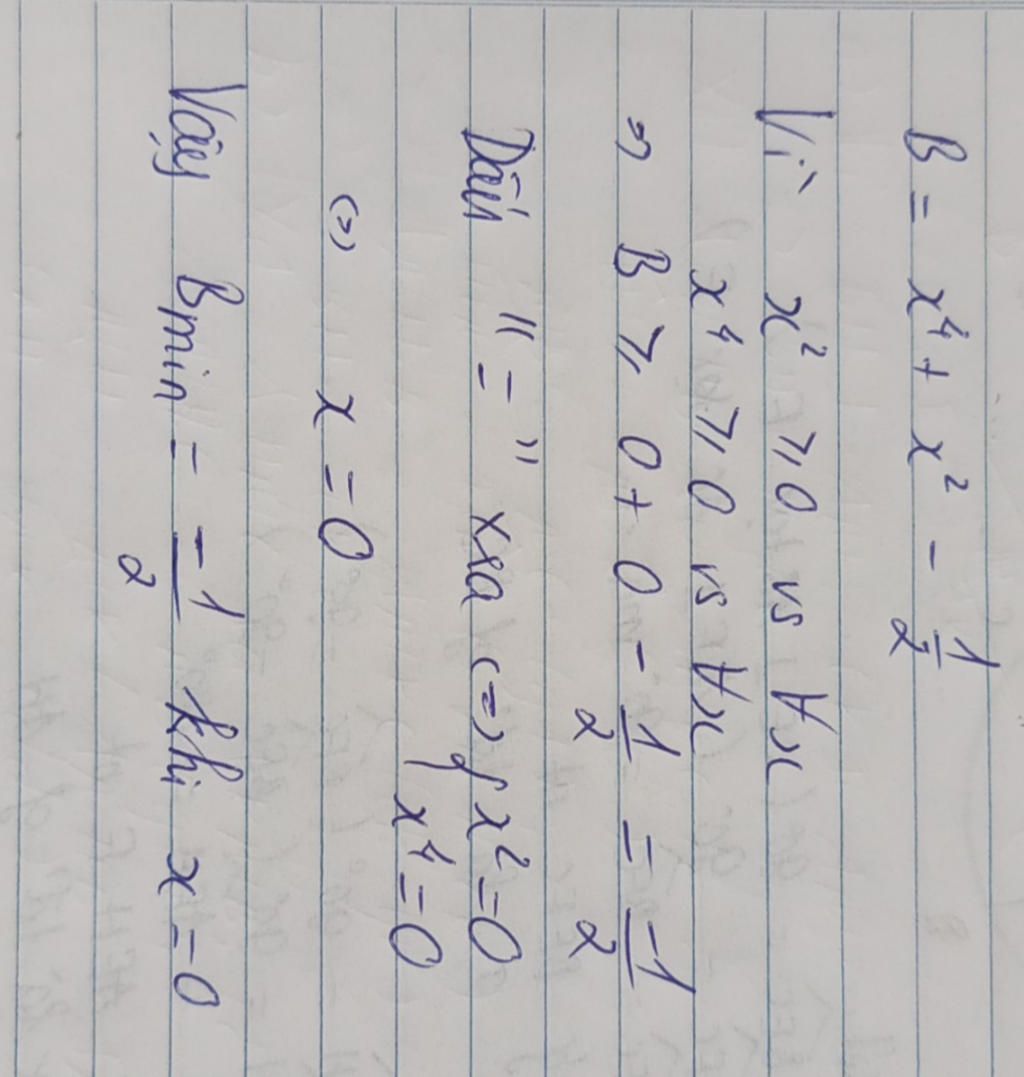 B = x⁴ + x² - 1/2
Vì x² ⩾ 0 vs ∀x
x⁴ ⩾ 0 vs ∀x
=> B ⩾ 0 + 0 - 1/2 = -1/2
Dấu " = " xra <=> { x² = 0
x⁴ = 0
<=> x = 0
Vậy Bmin = -1/2 khi x = 0